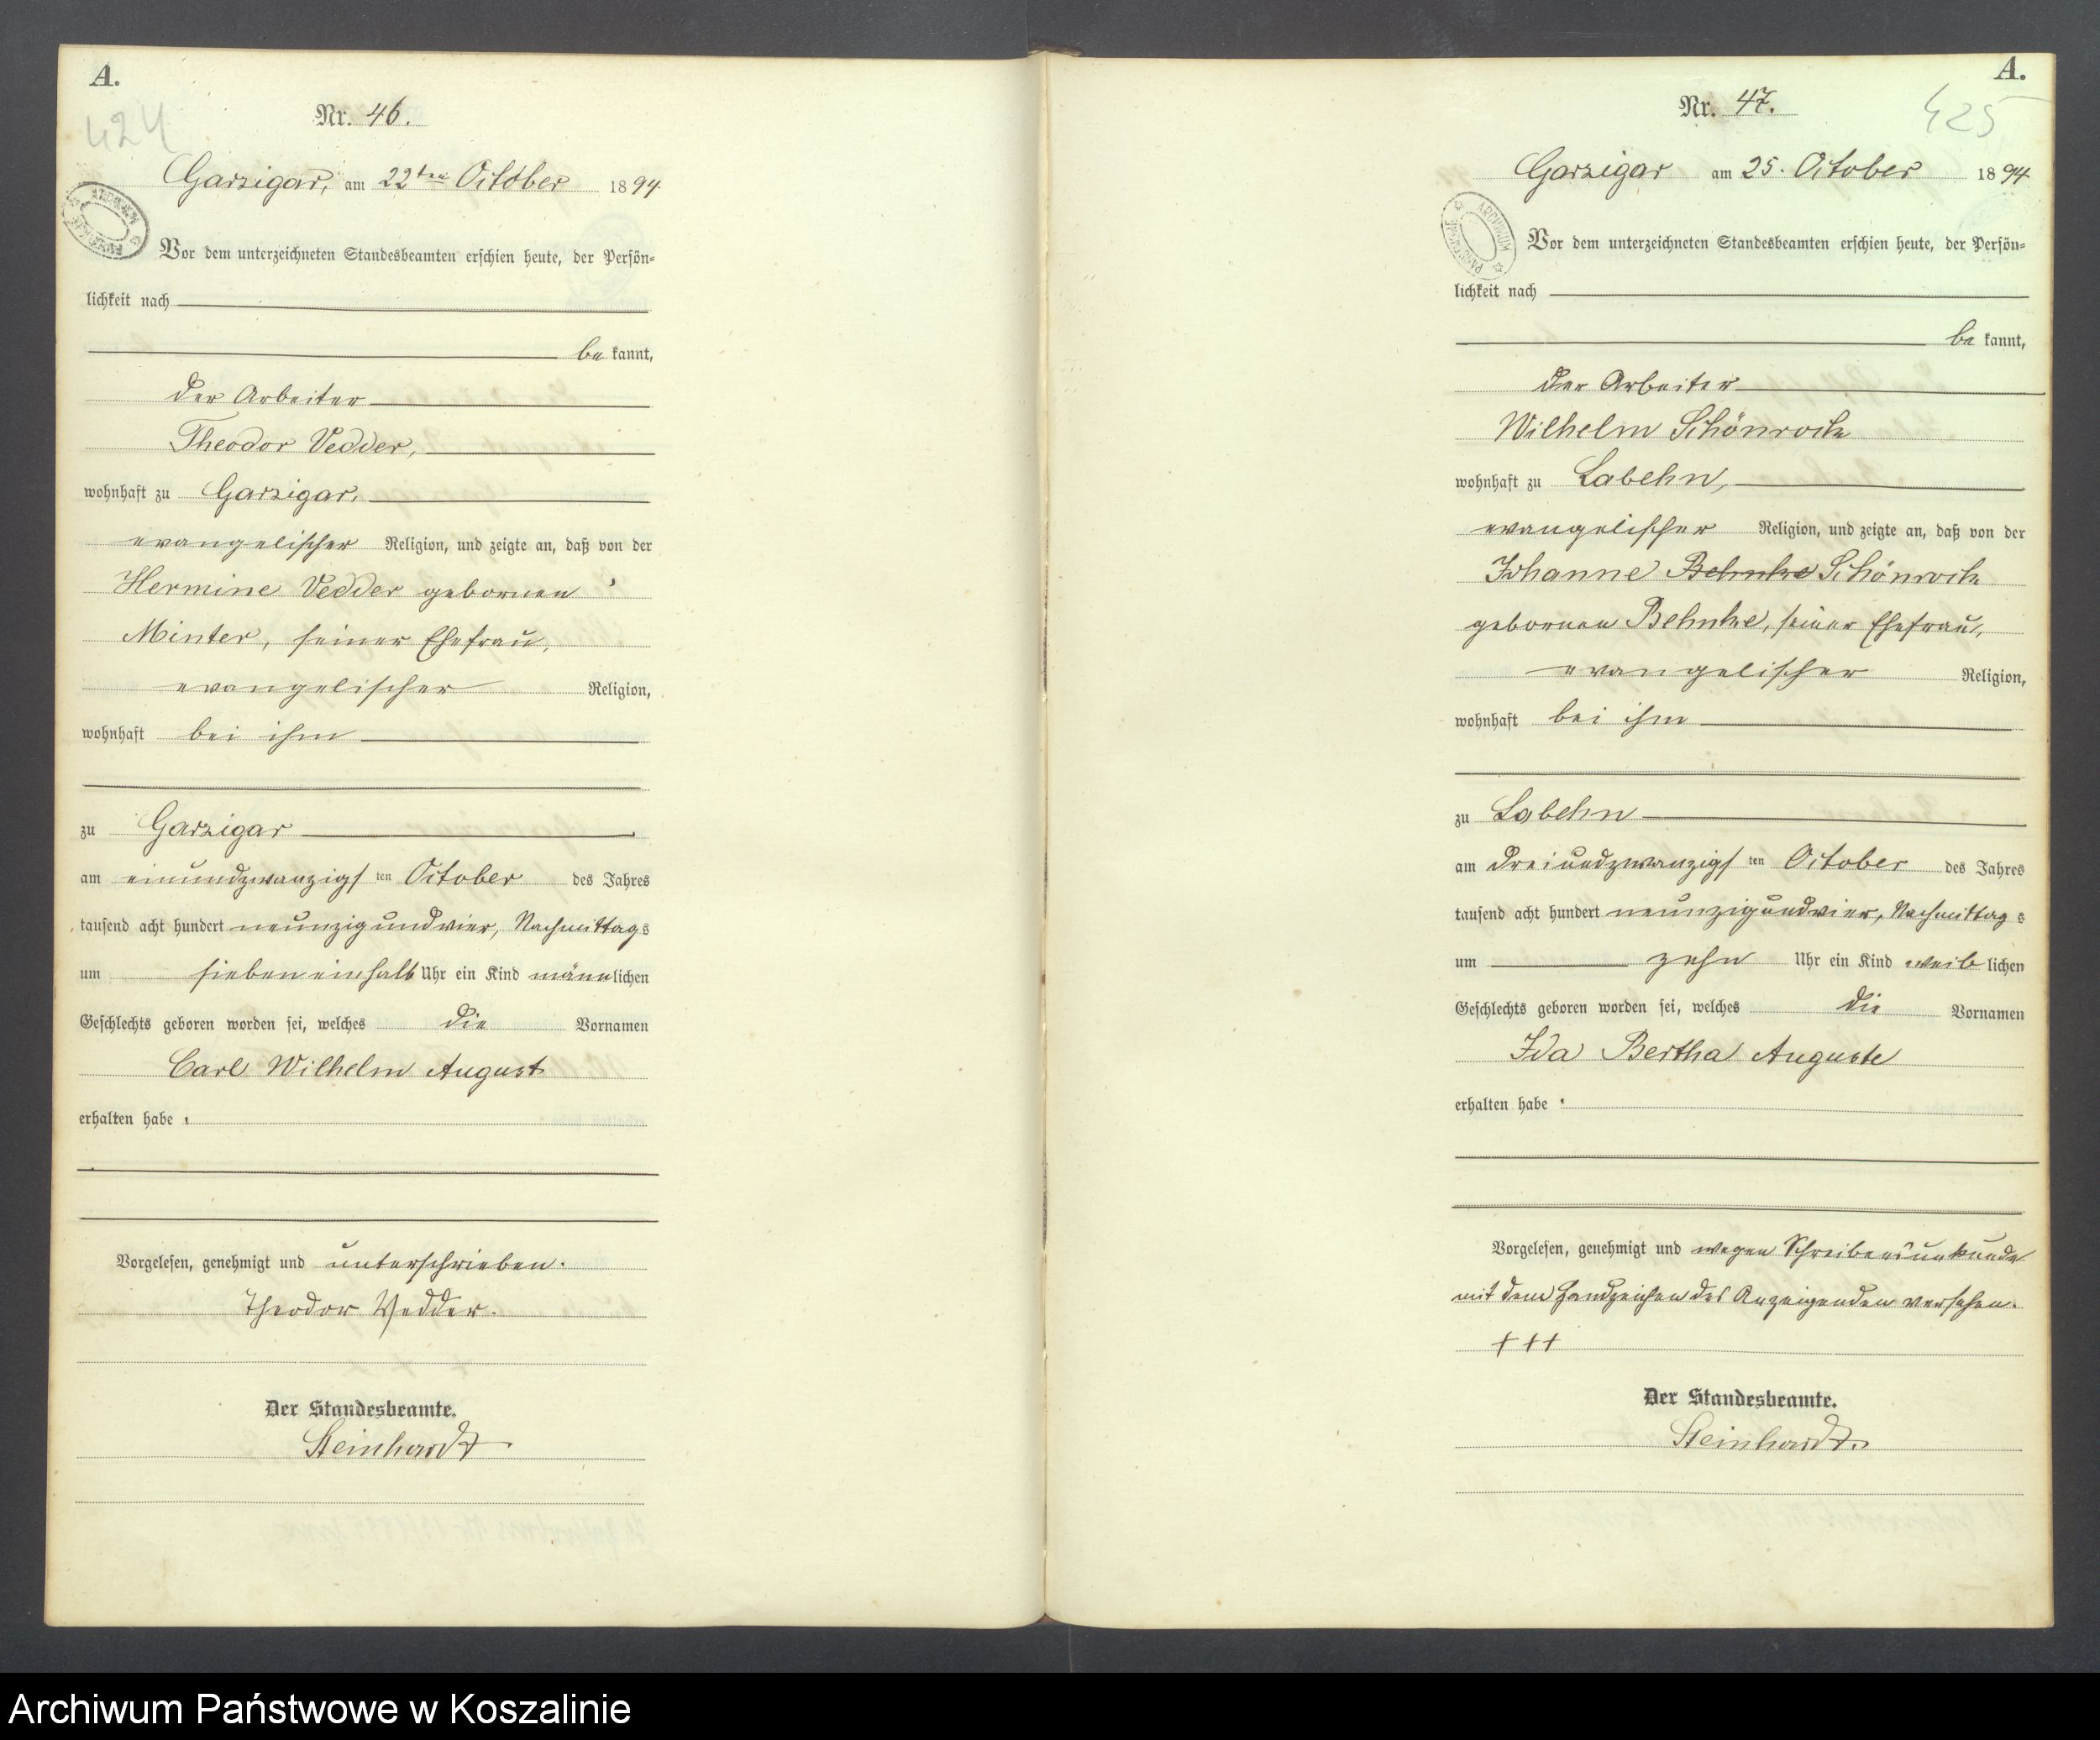 A.
424
Nr. 46.
Garzigar, am 22ten October 1894
Vor dem unterzeichneten Standesbeamten erschien heute, der Persön-
lichkeit nach
be kannt,
der Arbeiter
Theodor Vedder,
wohnhaft zu Garzigar,
evangelischer Religion, und zeigte an, daß von der
Hermine Vedder gebornen
Minter, seiner Ehefrau,
evangelischer Religion,
wohnhaft bei ihm
zu Garzigar
am einundzwanzigsten October des Jahres
tausend acht hundert neunzigundvier, Nachmittags
um siebeneinhalb Uhr ein Kind männlichen
Geschlechts geboren worden sei, welches die Vornamen
Carl Wilhelm August
erhalten habe.
Vorgelesen, genehmigt und unterschrieben.
Theodor Vedder.
Der Standesbeamte.
Steinhardt
A.
425
Nr. 47.
Garzigar am 25. October 1894
ARCHIWUM PAŃSTWOWE
Vor dem unterzeichneten Standesbeamten erschien heute, der Persön-
lichkeit nach
be kannt,
der Arbeiter
Wilhelm Schönrock
wohnhaft zu Labehn,
evangelischer Religion, und zeigte an, daß von der
Johanne Behnke Schönrock
gebornen Behnke, seiner Ehefrau,
evangelischer Religion,
wohnhaft bei ihm
zu Labehn
am dreiundzwanzigsten October des Jahres
tausend acht hundert neunzigundvier, Nachmittags
um zehn Uhr ein Kind weiblichen
Geschlechts geboren worden sei, welches die Vornamen
Ida Bertha Auguste
erhalten habe.
Vorgelesen, genehmigt und wegen Schreibensunkunde
mit dem Handzeichen des Anzeigenden versehen.
+++
Der Standesbeamte.
Steinhardt.
Archiwum Państwowe w Koszalinie